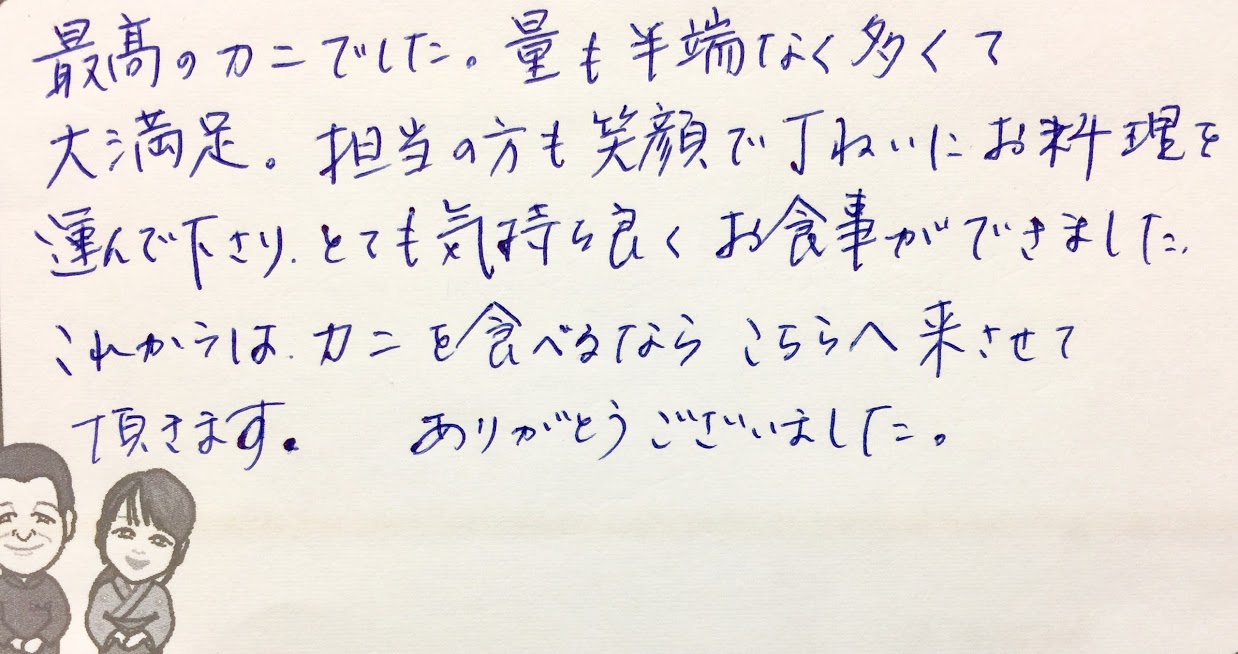 最高のカニでした。量も半端なく多くて
大満足。担当の方も笑顔で丁ねいにお料理を
運んで下さり、とても気持ち良くお食事ができました。
これからは、カニを食べるならこちらへ来させて
頂きます。 ありがとうございました。